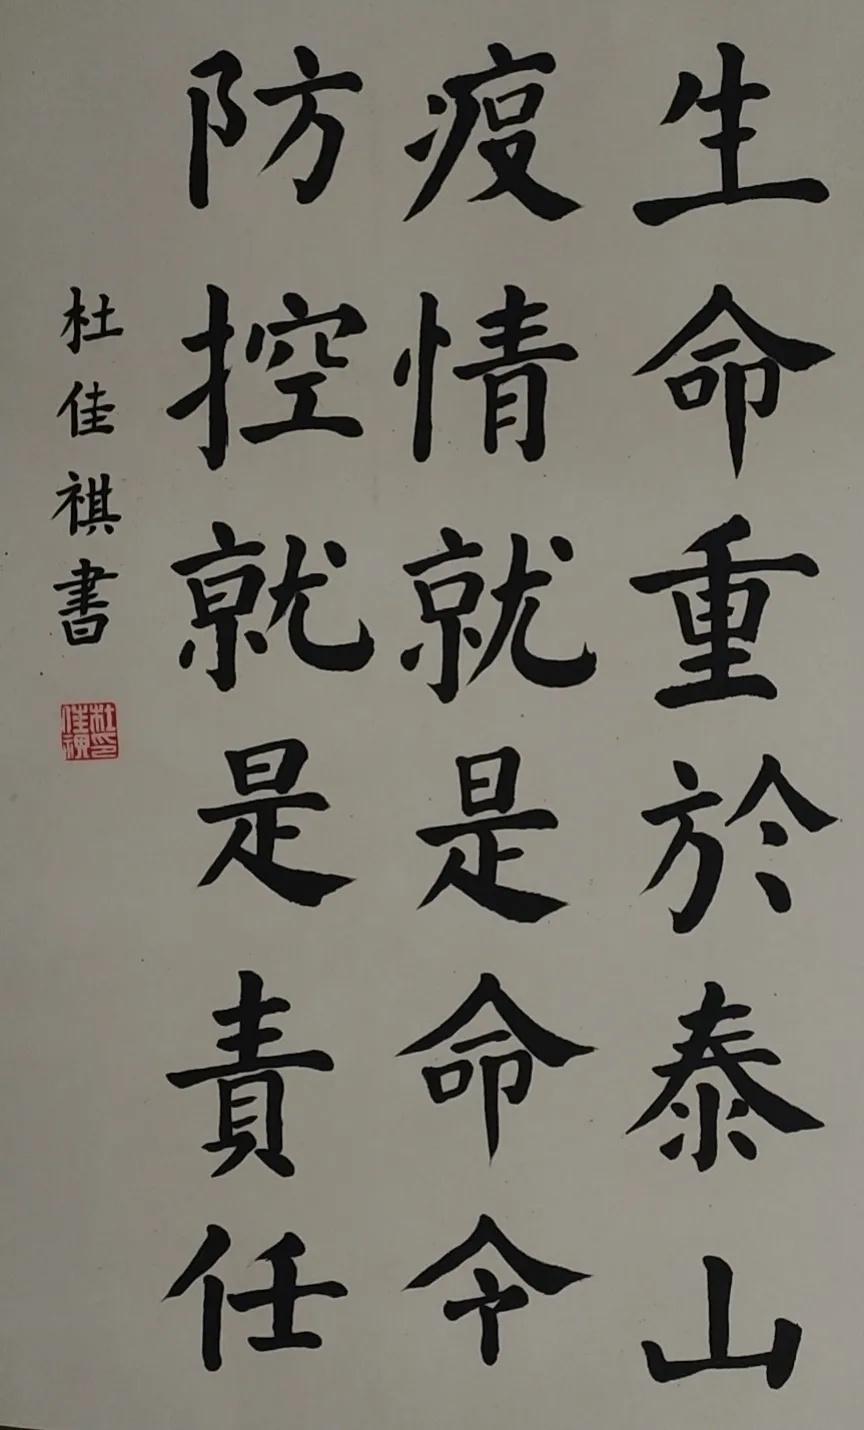 生命重於泰山
疫情就是命令
防控就是責任
杜佳祺書
杜佳祺印